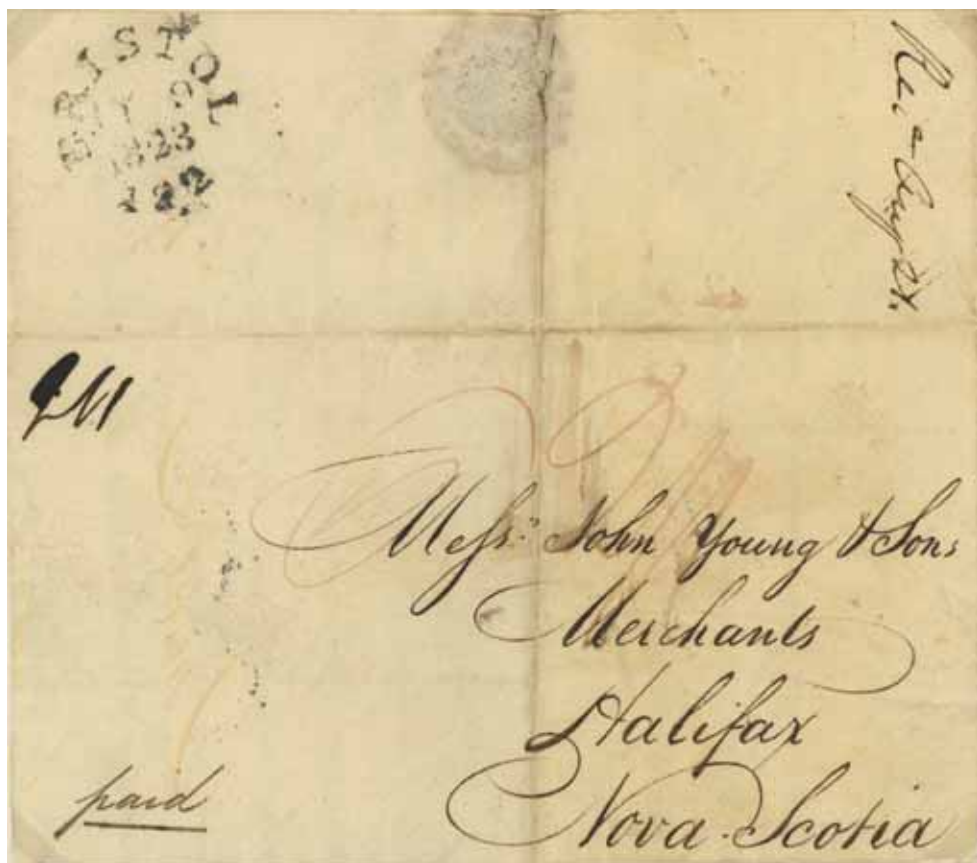 BRISTOL
1823
122
Rec. Aug 21.
Messrs. John Young & Sons
Merchants
Halifax
Nova Scotia
paid